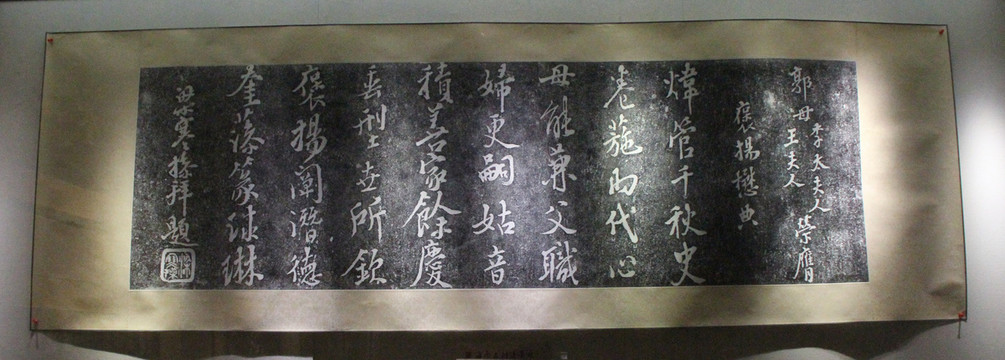 郭母李太夫人王夫人榮膺
褒揚懋典
煒管千秋史
卷葹两代心
母能兼父職
婦更嗣姑音
積善家餘慶
垂型世所欽
褒揚闡潛德
奎藻篆球琳
拜題